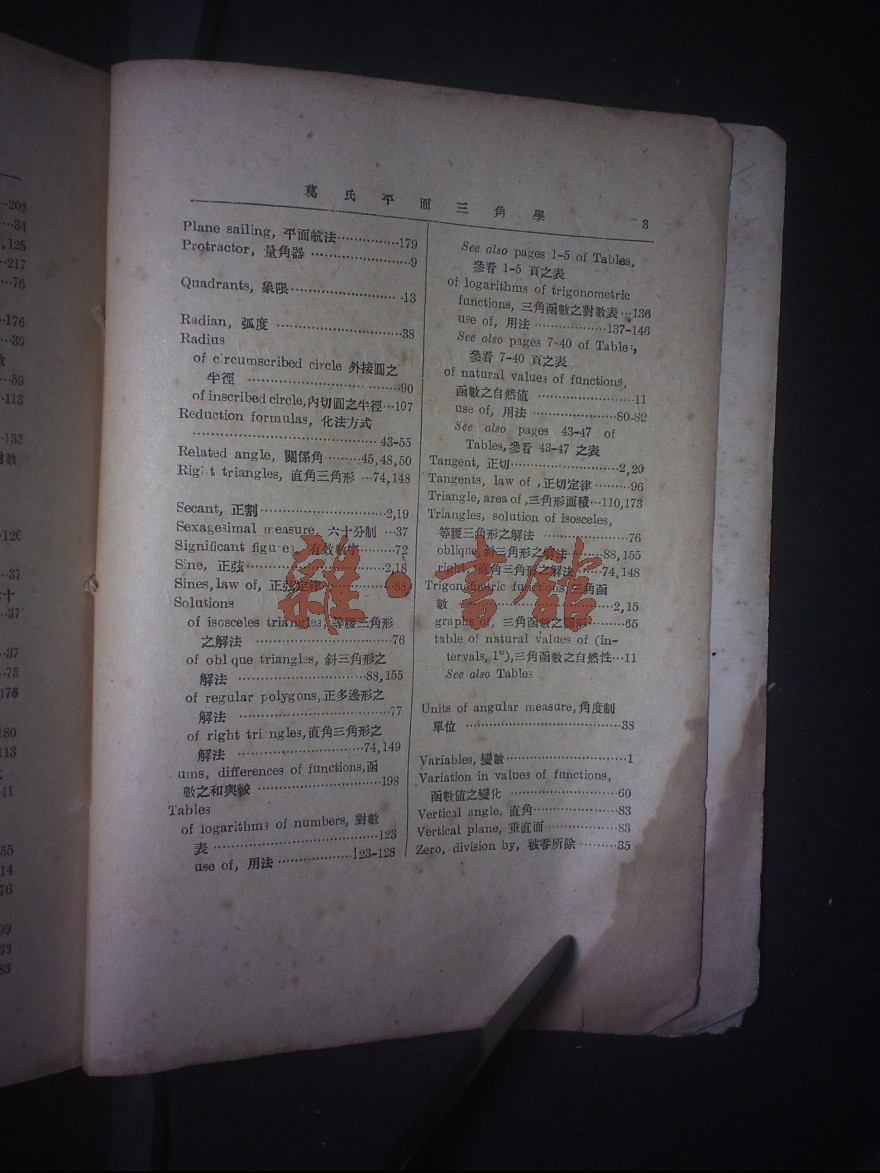 葛氏平面三角學 3
Plane sailing, 平面航法……………179
Protractor, 量角器 ……………………9
Quadrants, 象限……………………·13
Radian, 弧度 …………………………38
Radius
of circumscribed circle 外接圓之
半徑 ……………………………90
of inscribed circle,內切圓之半徑…107
Reduction formulas, 化法方式
……………………………………43-55
Related angle, 關係角………45,48,50
Right triangles, 直角三角形 …74,148
Secant, 正割…………………………2,19
Sexagesimal measure, 六十分制 …37
Significant figures, 有效數字………72
Sine, 正弦……………………………2,18
Sines,law of, 正弦定律………………88
Solutions
of isosceles triangles,等腰三角形
之解法 …………………………76
of oblique triangles, 斜三角形之
解法 …………………………88,155
of regular polygons,正多邊形之
解法 ……………………………77
of right triangles,直角三角形之
解法 …………………………74,149
ums, differences of functions,函
數之和與較 ………………………198
Tables
of logarithms of numbers, 對數
表……………………………………123
use of, 用法………………123-128
See also pages 1-5 of Tables,
參看 1-5 頁之表
of logarithms of trigonometric
functions, 三角函數之對數表…136
use of, 用法………………137-146
See also pages 7-40 of Tables,
參看 7-40 頁之表
of natural values of functions,
函數之自然值 ……………………11
use of, 用法…………………80-82
See also pages 43-47 of
Tables,參看 43-47 之表
Tangent, 正切………………………2,20
Tangents, law of ,正切定律………96
Triangle, area of ,三角形面積…110,173
Triangles, solution of isosceles,
等腰三角形之解法 …………………76
oblique, 斜三角形之解法………88,155
right, 直角三角形之解法……74,148
Trigonometric functions, 三角函
數 ……………………………………2,15
graphs of, 三角函數之圖形………65
table of natural values of (in-
tervals, 1°),三角函數之自然性…11
See also Tables
Units of angular measure,角度制
單位 ……………………………………38
Variables, 變數…………………………1
Variation in values of functions,
函數值之變化 ………………………60
Vertical angle, 直角…………………83
Vertical plane, 垂直面………………83
Zero, division by, 被零所除 ………35
雜·書館